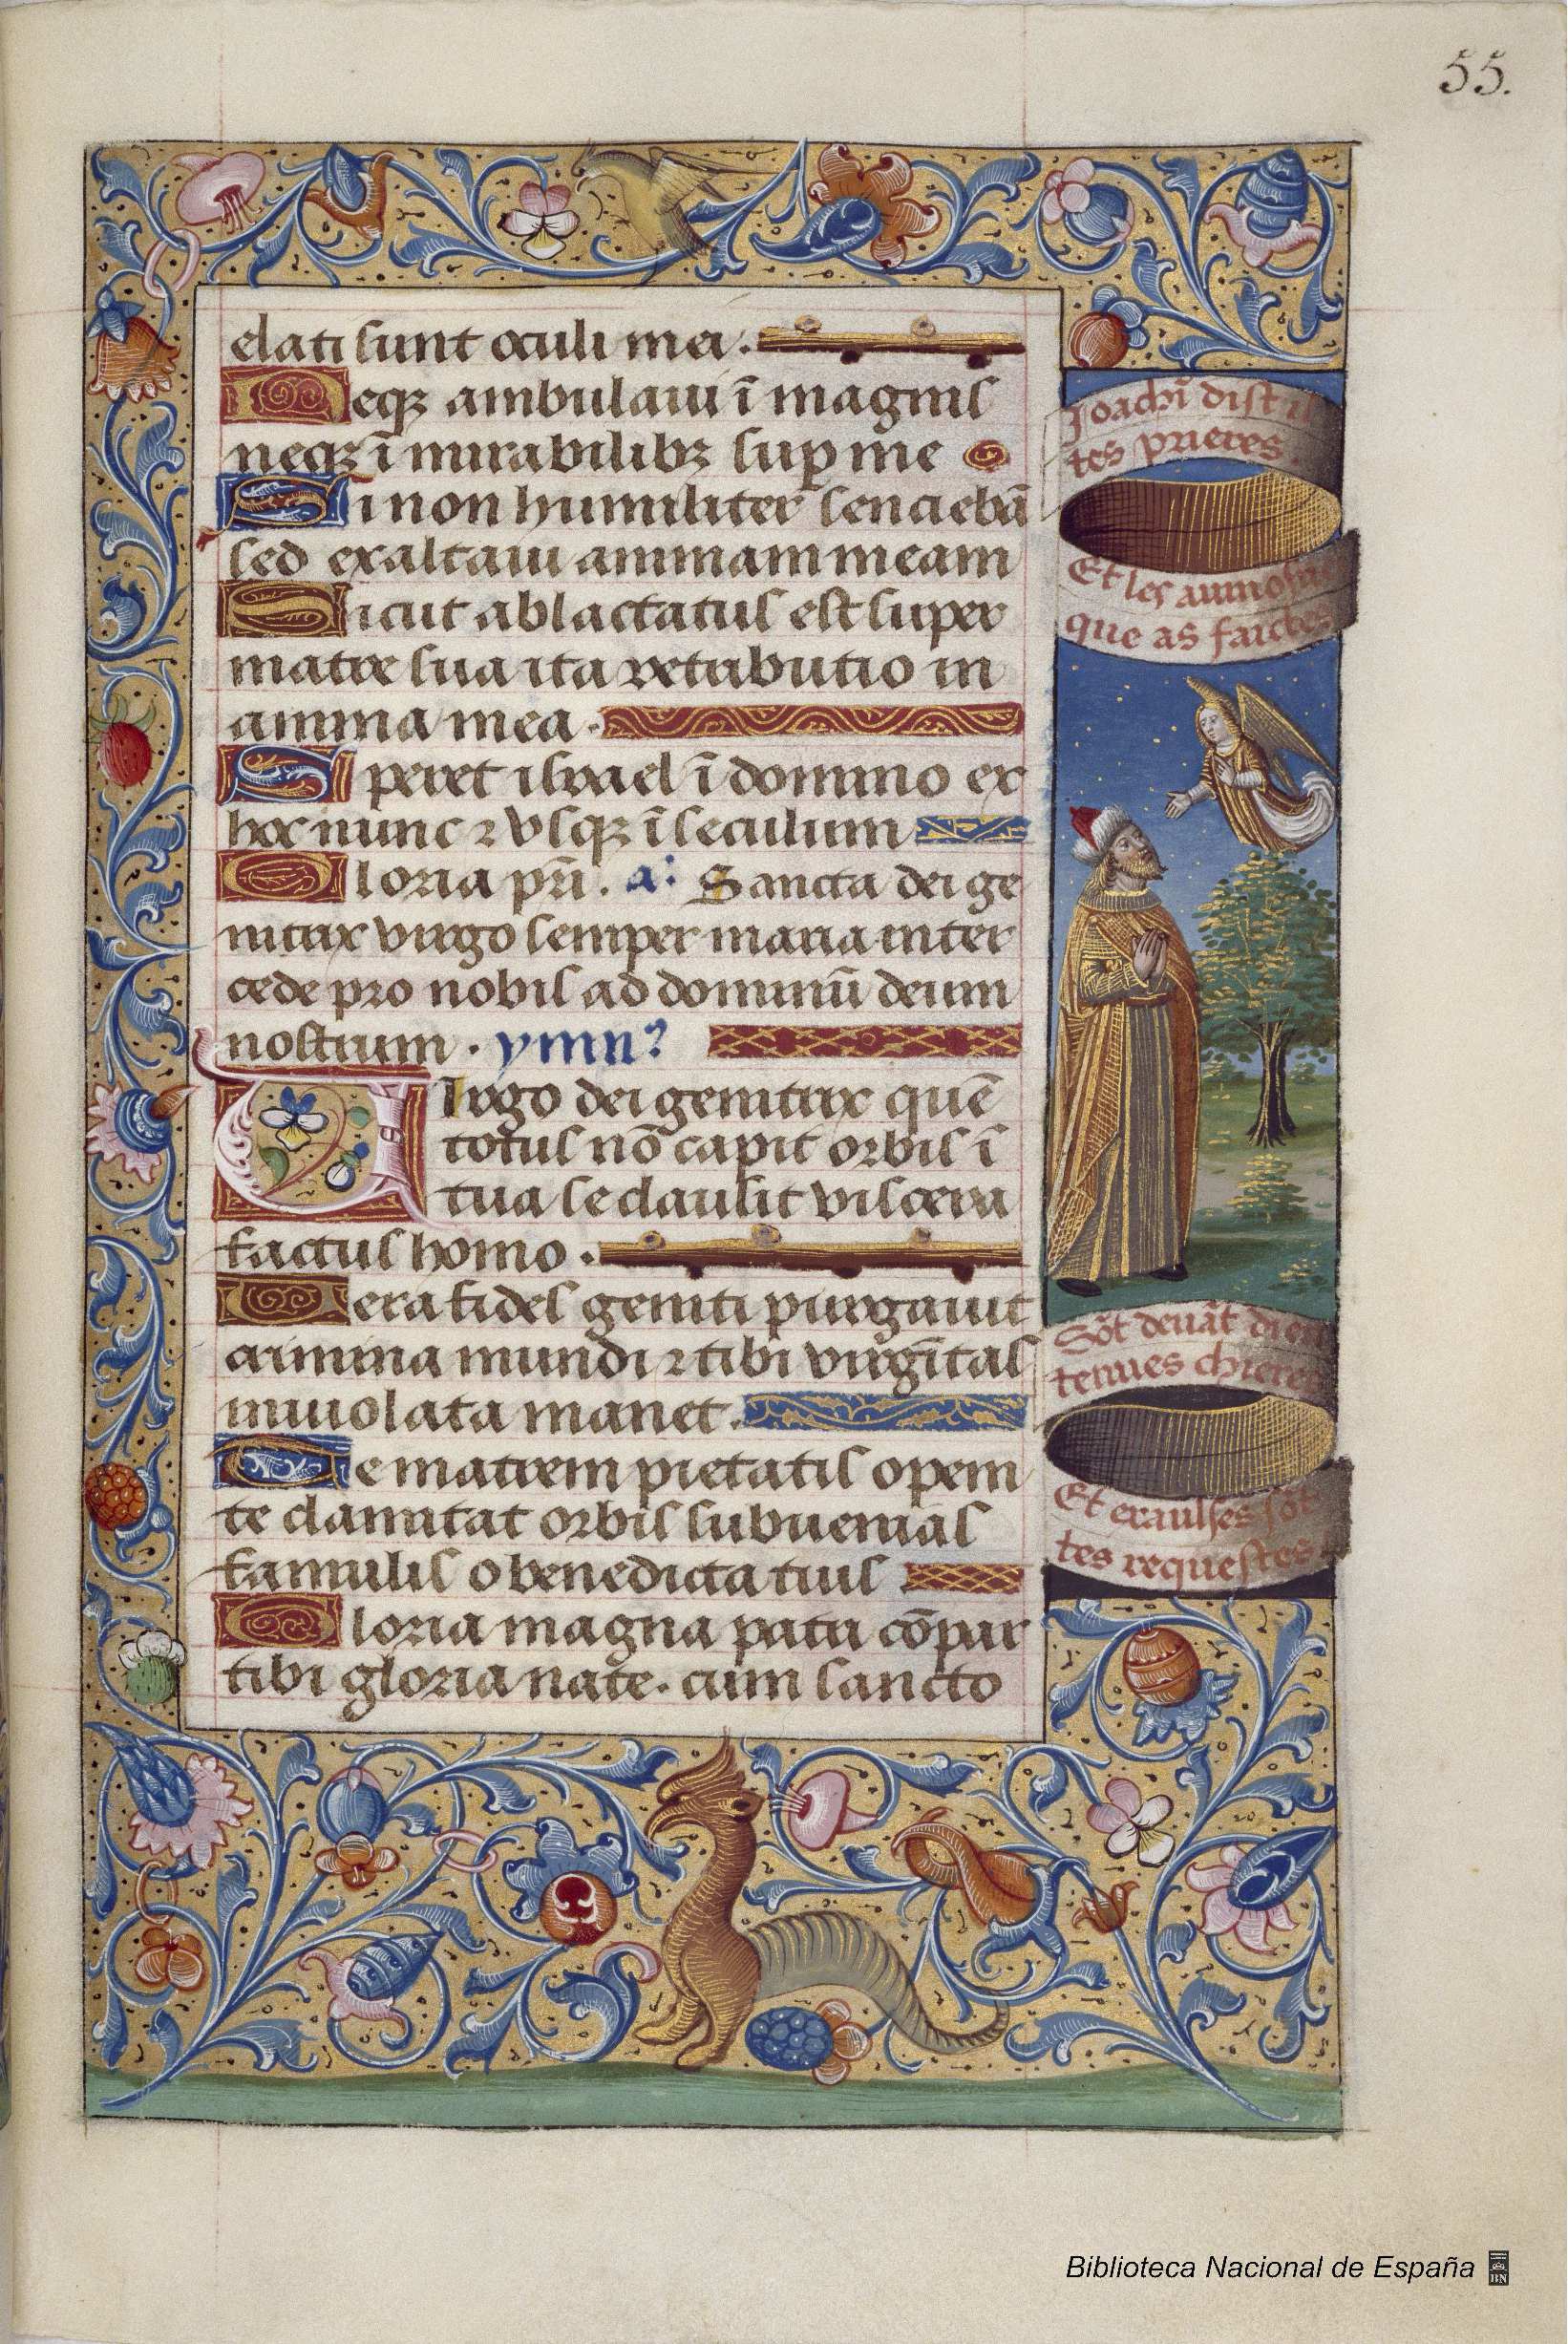 55.
elati sunt oculi mei.
Neqꝫ ambulaui ī magnis
neqꝫ ī mirabilibꝫ suꝑ me
Si non humiliter senciebā
sed exaltaui animam meam
Sicut ablactatus est super
matre sua ita retributio in
anima mea.
Speret israel ī domino ex
hoc nunc ⁊ vsqꝫ ī seculum
Gloria pr̄i. a: Sancta dei ge
nitrix virgo semper maria inter
cede pro nobis ad dominū deum
nostrum. ymnꝰ
Virgo dei genitrix quē
totus nō capit orbis ī
tua se clausit viscera
factus homo.
Vera fides geniti purgauit
crimina mundi ⁊ tibi virgītas
inuiolata manet.
Te matrem pietatis opem
te clamitat orbis subuenias
famulis o benedicta tuis
Gloria magna patri cōpar
tibi gloria nate. cum sancto
Joachī dist il
tes prieres.
Et les aumosnes
que as faictes
Sōt deuāt dieu
tenues chieres
Et exaulses sōt
tes requestes
Biblioteca Nacional de España
BN